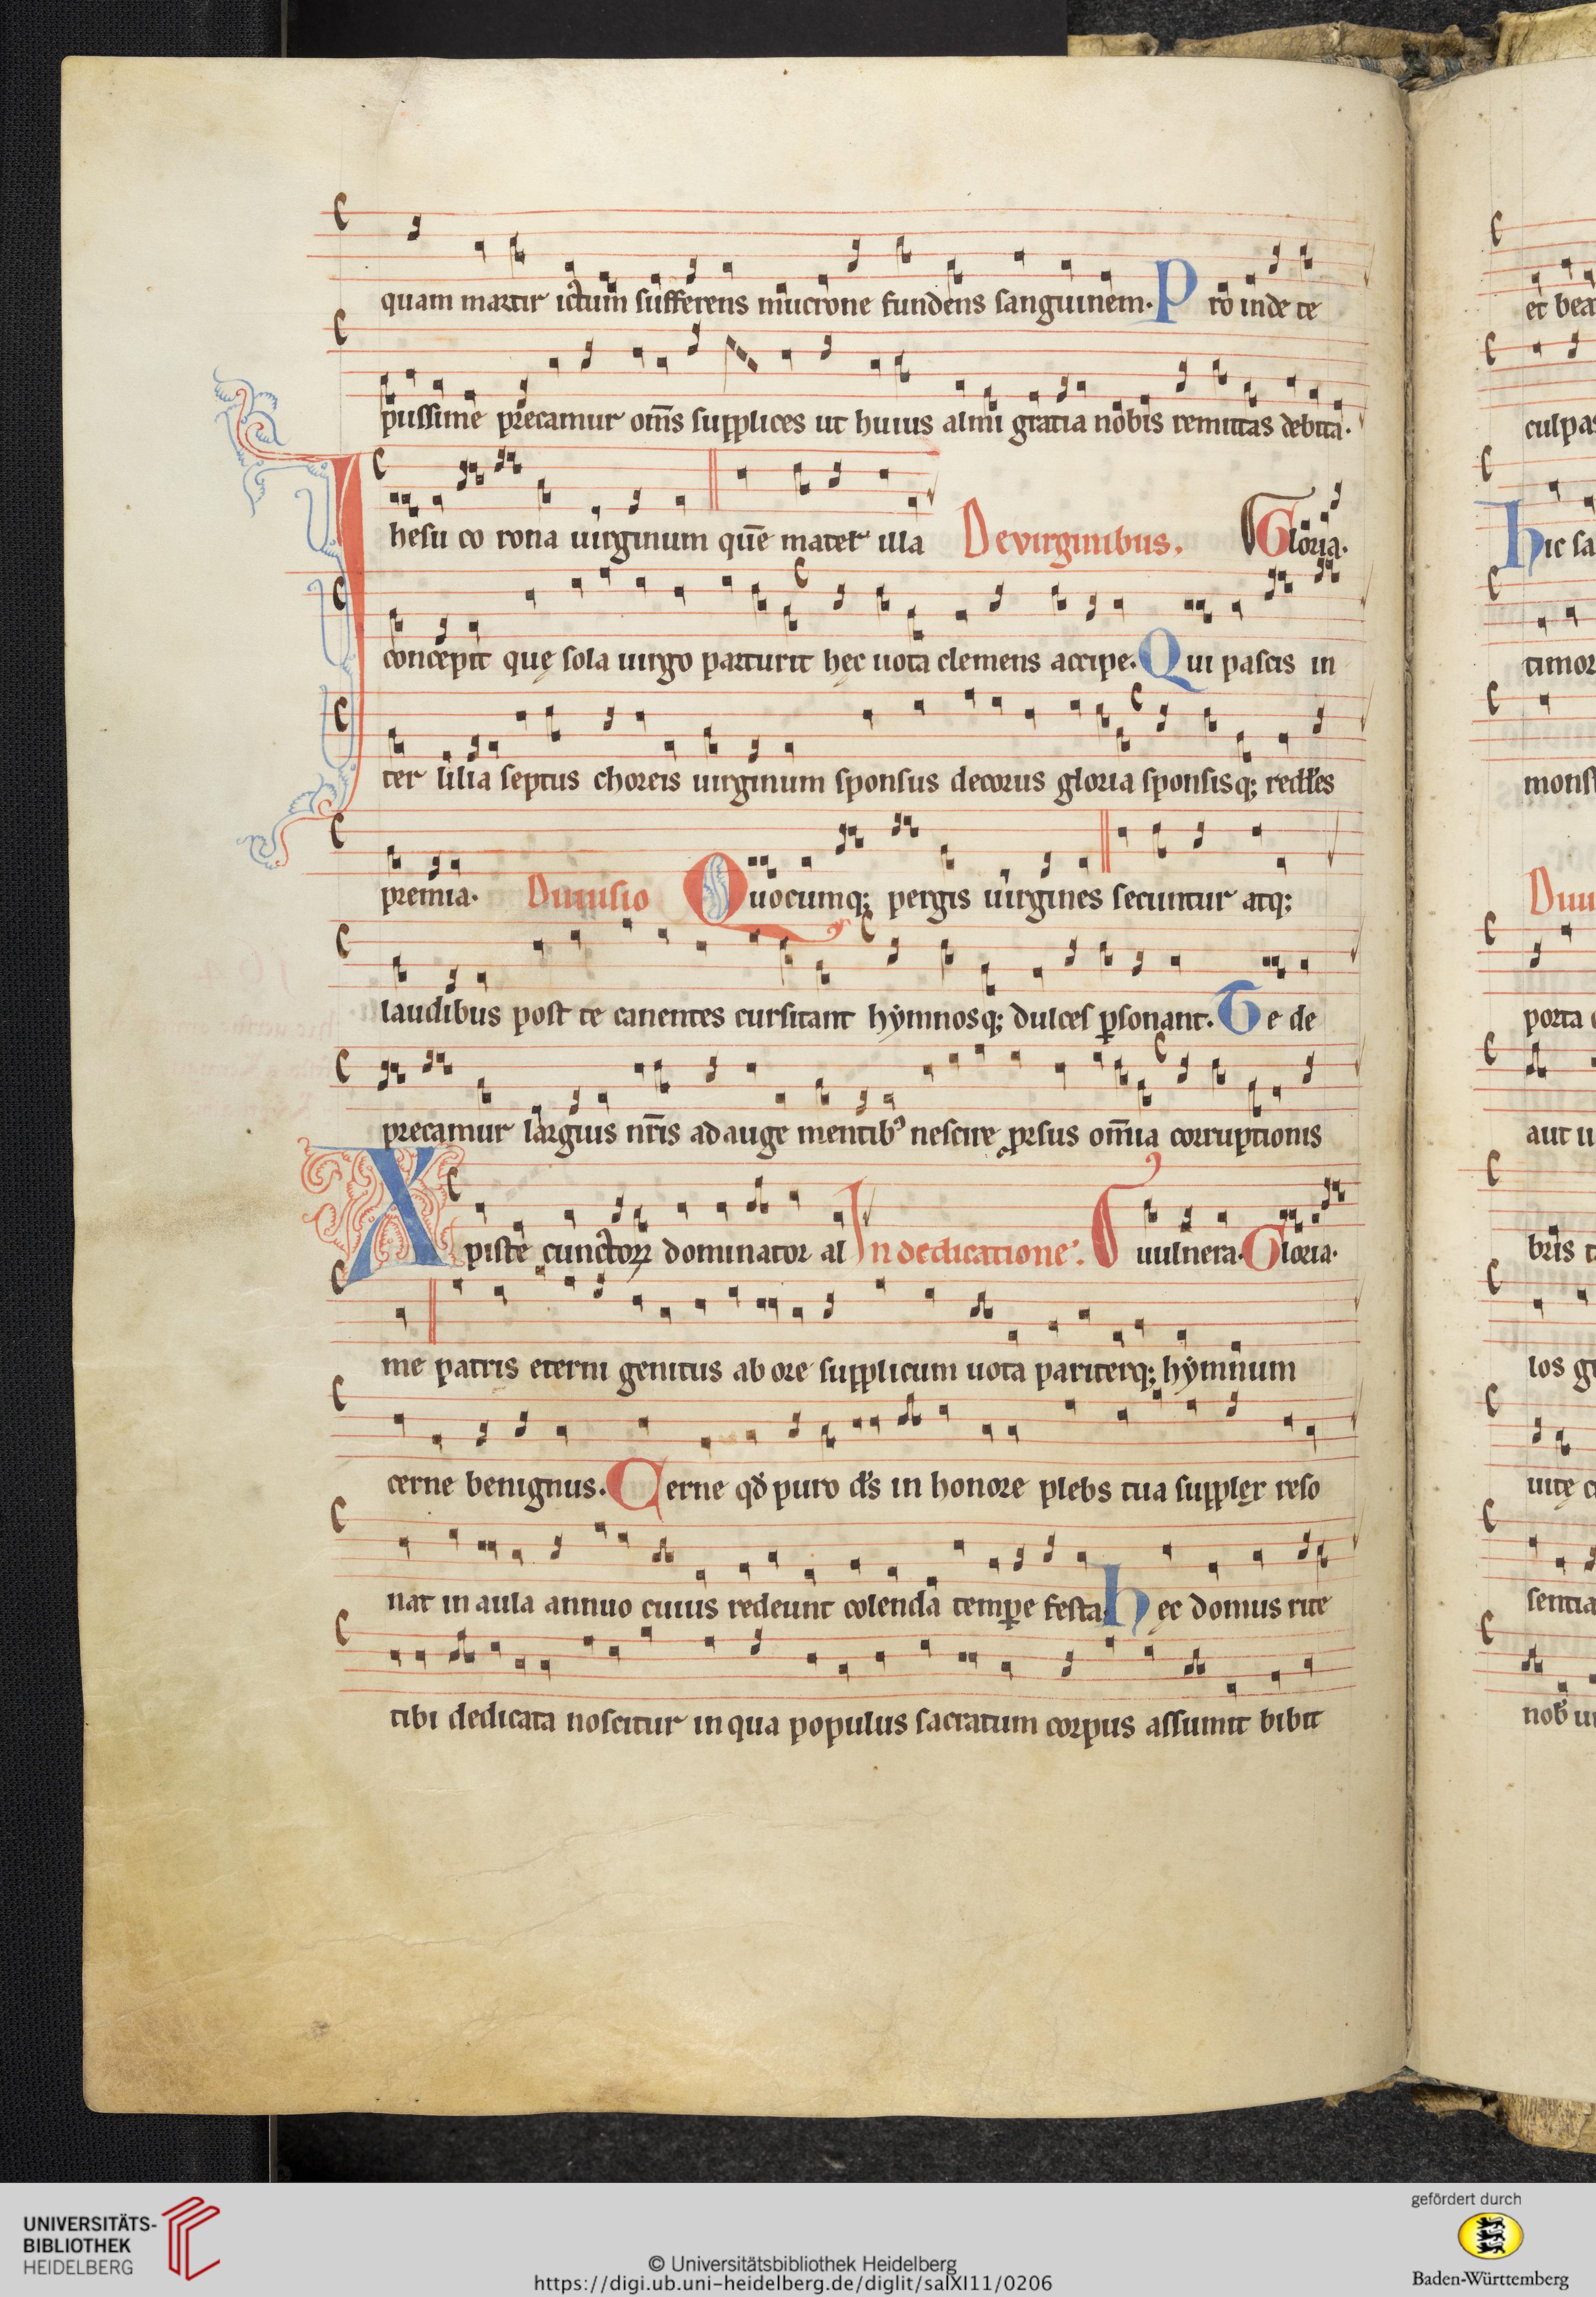 quam martir ictum sufferens mucrone fundens sanguinem. Pro inde te
piissime precamur om̄s supplices ut huius almi gratia nobis remittas debita.
Ihesu co rona uirginum quē mater illa De virginibus. Gloria.
concepit quę sola uirgo parturit hec uota clemens accipe. Qui pascis in
ter lilia septus choreis uirginum sponsus decorus gloria sponsisq; reddēs
premia. Diuisio Quocumq; pergis uirgines secuntur atq;
laudibus post te canentes cursitant hẏmnosq; dulces ꝑsonant. Te de
precamur largius nr̄is ad auge mentibꝰ nescire ꝓrsus om̄ia corruptionis
Xpiste cunctoꝝ dominator al In dedicatione. uulnera. Gloria.
me patris eterni genitus ab ore supplicum uota pariterq; hẏmnum
cerne benignus. Cerne qđ puro ds̄ in honore plebs tua supplex reso
nat in aula annuo cuius redeunt colenda temꝑe festa hec domus rite
tibi dedicata noscitur in qua populus sacratum corpus assumit bibit
et bea
culpas
hic sa
timor
monst
Diui
porta
aut u
bris t
los ge
uitę c
sentia
nob̄ ui
UNIVERSITÄTS-
BIBLIOTHEK
HEIDELBERG
© Universitätsbibliothek Heidelberg
https://digi.ub.uni-heidelberg.de/diglit/salXI11/0206
gefördert durch
Baden-Württemberg